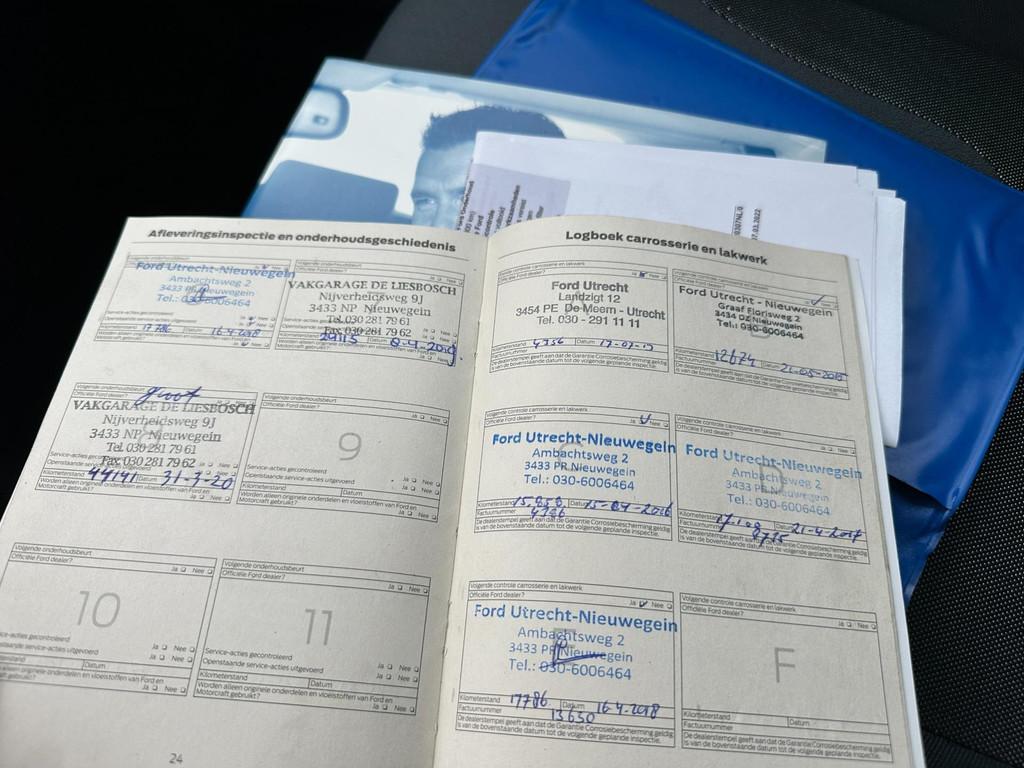 Afleveringsinspectie en onderhoudsgeschiedenis
Volgende onderhoudsbeurt
Officiële Ford dealer?
Ford Utrecht-Nieuwegein
Ambachtsweg 2
3433 PR Nieuwegein
Tel.: 030-6006464
Service-acties gecontroleerd
Openstaande service-acties uitgevoerd
Kilometerstand 17786 Datum 16-4-2018
Worden alleen originele onderdelen en vloeistoffen van Ford en
Motorcraft gebruikt?
VAKGARAGE DE LIESBOSCH
Nijverheidsweg 9J
3433 NP Nieuwegein
Tel. 030 281 79 61
Fax 030 281 79 62
29115 Datum 8-4-2019
Worden alleen originele onderdelen en vloeistoffen van Ford en
Motorcraft gebruikt?
Volgende onderhoudsbeurt
Officiële Ford dealer?
VAKGARAGE DE LIESBOSCH
Nijverheidsweg 9J
3433 NP Nieuwegein
Tel. 030 281 79 61
Fax 030 281 79 62
44141 Datum 31-7-20
Worden alleen originele onderdelen en vloeistoffen van Ford en
Motorcraft gebruikt?
Volgende onderhoudsbeurt
Officiële Ford dealer? Ja Nee
9
Service-acties gecontroleerd
Openstaande service-acties uitgevoerd Ja Nee
Kilometerstand Datum
Worden alleen originele onderdelen en vloeistoffen van Ford en
Motorcraft gebruikt? Ja Nee
Volgende onderhoudsbeurt
Officiële Ford dealer? Ja Nee
10
Service-acties gecontroleerd
Openstaande service-acties uitgevoerd Ja Nee
Kilometerstand Datum
Worden alleen originele onderdelen en vloeistoffen van Ford en
Motorcraft gebruikt? Ja Nee
Volgende onderhoudsbeurt
Officiële Ford dealer? Ja Nee
11
Service-acties gecontroleerd
Openstaande service-acties uitgevoerd Ja Nee
Kilometerstand Datum
Worden alleen originele onderdelen en vloeistoffen van Ford en
Motorcraft gebruikt? Ja Nee
24
Logboek carrosserie en lakwerk
Volgende controle carrosserie en lakwerk
Officiële Ford dealer?
Ford Utrecht
Landzigt 12
3454 PE De Meern - Utrecht
Tel. 030 - 291 11 11
Kilometerstand 4756 Datum
Factuurnummer
De dealerstempel geeft aan dat de Garantie Corrosiebescherming geldig
is van de bovenstaande datum tot de volgende geplande inspectie.
Ford Utrecht - Nieuwegein
Graaf Florisweg 2
3434 DZ Nieuwegein
Tel.: 030-6006464
Kilometerstand 12674 Datum
Factuurnummer
De dealerstempel geeft aan dat de Garantie Corrosiebescherming geldig
is van de bovenstaande datum tot de volgende geplande inspectie.
Volgende controle carrosserie en lakwerk
Officiële Ford dealer? Ja Nee
Ford Utrecht-Nieuwegein
Ambachtsweg 2
3433 PR Nieuwegein
Tel.: 030-6006464
Kilometerstand 15.050 Datum 15-04-2016
Factuurnummer 4786
De dealerstempel geeft aan dat de Garantie Corrosiebescherming geldig
is van de bovenstaande datum tot de volgende geplande inspectie.
Volgende controle carrosserie en lakwerk
Officiële Ford dealer?
Ford Utrecht-Nieuwegein
Ambachtsweg 2
3433 PR Nieuwegein
Tel.: 030-6006464
Kilometerstand 17.109 Datum 21-4-2017
Factuurnummer 8775
De dealerstempel geeft aan dat de Garantie Corrosiebescherming geldig
is van de bovenstaande datum tot de volgende geplande inspectie.
Volgende controle carrosserie en lakwerk
Officiële Ford dealer? Ja Nee
Ford Utrecht-Nieuwegein
Ambachtsweg 2
3433 PR Nieuwegein
Tel.: 030-6006464
Kilometerstand 17786 Datum 16-4-2018
Factuurnummer 13650
De dealerstempel geeft aan dat de Garantie Corrosiebescherming geldig
is van de bovenstaande datum tot de volgende geplande inspectie.
Volgende controle carrosserie en lakwerk
Officiële Ford dealer? Ja Nee
F
Kilometerstand Datum
Factuurnummer
De dealerstempel geeft aan dat de Garantie Corrosiebescherming geldig
is van de bovenstaande datum tot de volgende geplande inspectie.